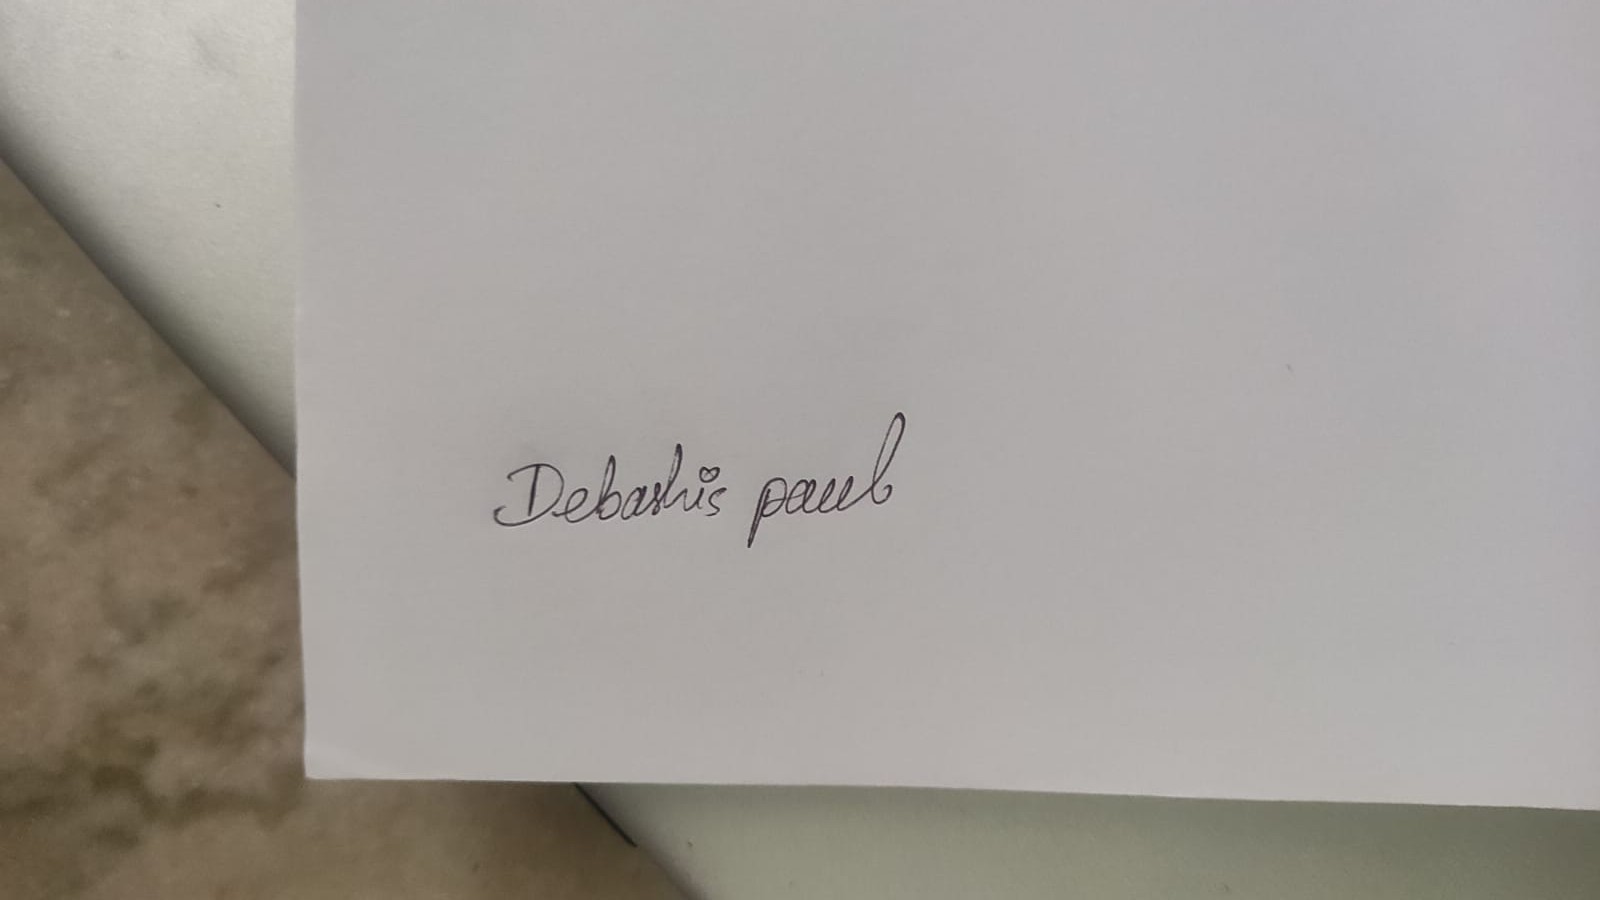 Debashis paul